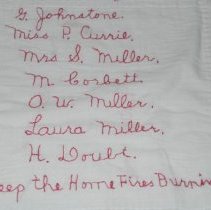 G. Johnstone.
Miss P. Currie.
Mrs S. Miller.
M Corbett.
O. W. Miller.
Laura Miller.
H. Doubt.
eep the Home Fires Burnin